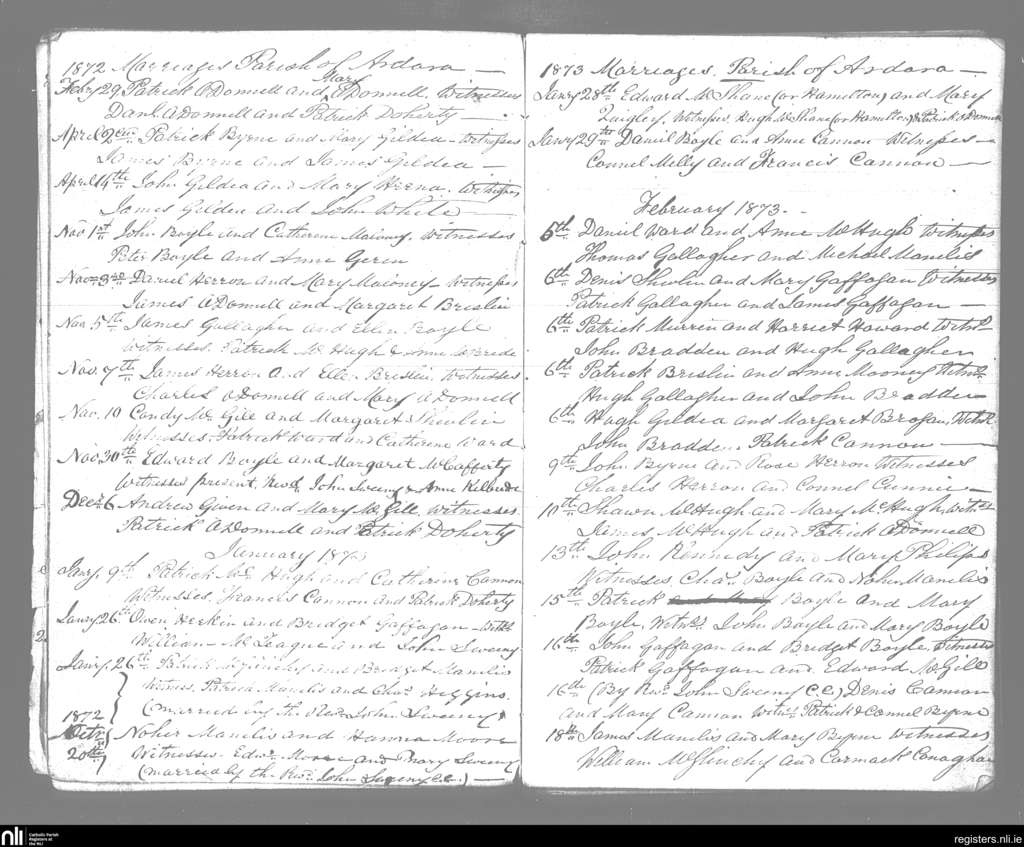 1872 Marriages Parish of Ardara —
Feby 29 Patrick O'Donnell and Mary O'Donnell. Witnesses
Danl. O'Donnell and Patrick Doherty —
April 2 Patrick Byrne and Mary Gildea — Witnesses
James Byrne and James Gildea —
April 14th John Gildea and Mary Witnesses
James Gildea and John White —
Nov 1st John Boyle and Catherine Witnesses
Peter Boyle and Anne
Nov 3rd Daniel Herron and Mary Witnesses
James O'Donnell and Margaret Breslin
Nov. 5th James Gallagher and Ellen Boyle
Witnesses. Patrick Mc Hugh & Anne
Nov. 7th James Herron and Ellen Breslin. Witnesses
Charles O'Donnell and Mary O'Donnell
Nov. 10 Condy Mc Gill and Margaret
Witnesses. Patrick Ward and Catherine Ward
Nov. 30th Edward Boyle and Margaret McCafferty
Witnesses present, Revd. John Sweeny & Anne
Decr 6 Andrew Given and Mary McGill. Witnesses
Patrick O'Donnell and Patrick Doherty
January 1873
Jany. 9th Patrick Mc Hugh and Catherine Cannon
Witnesses, Francis Cannon and Patrick Doherty
Jany 26th Owen and Bridget Gaffagan
William and John Sweeny
Jany. 26th Patrick and Bridget Manelis
Witness, Patrick Manelis and Chas. Higgins.
(married by the Revd John Sweeny)
1872
Noher Manelis and Moore
20th Witnesses. Edwd. Moore and Mary Sweeny
(married by the Revd. John Sweeny C.C.) —
1873 Marriages. Parish of Ardara —
Jany 28th Edward McShane (or Hamilton) and Mary
Quigley. Witnesses, Hugh McShane (or Hamilton) & Patrick O'Donnell
Jany 29th Daniel Boyle and Anne Cannon Witnesses —
Connel Melly and Francis Cannon —
February 1873. —
5th Daniel Ward and Anne McHugh Witnesses
Thomas Gallagher and Michael Manelis
6th Denis and Mary Gaffagan Witnesses
Patrick Gallagher and James Gaffagan —
6th Patrick Murrin and Harriet Howard
John Bradden and Hugh Gallagher
6th Patrick Brislin and Anne Mooney
Hugh Gallagher and John Bradden
6th Hugh Gildea and Margaret Brogan,
John Bradden. Patrick Cannon —
9th John Byrne and Rose Herron Witnesses
Charles Herron and Connel —
10th Shawn McHugh and Mary McHugh,
James McHugh and Patrick O'Donnell
13th John Kennedy and Mary Philips
Witnesses, Chas. Boyle and Noher Manelis
15th Patrick Boyle and Mary
Boyle, John Boyle and Mary Boyle
16th John Gaffagan and Bridget Boyle, Witnesses
Patrick Gaffagan and Edward McGill
16th (By Revd. John Sweeny C.C.) Denis Cannon
and Mary Cannon Patrick & Connel Byrne
18th James Manelis and Mary Byrne Witnesses
William McGlinchy and Cormack Conaghan
nli Catholic Parish Registers at the NLI
registers.nli.ie